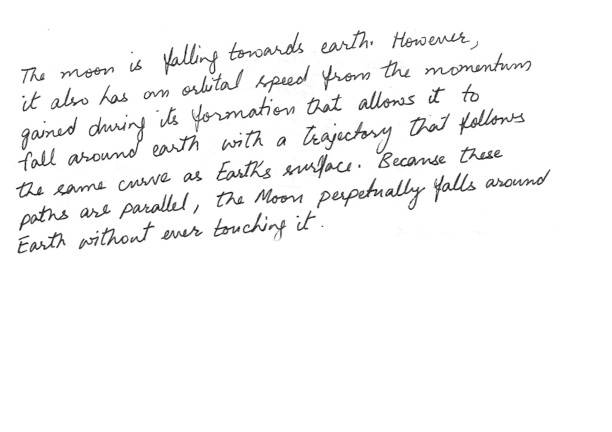 The moon is falling towards earth. However,
it also has an orbital speed from the momentum
gained during its formation that allows it to
fall around earth with a trajectory that follows
the same curve as Earth's surface. Because these
paths are parallel, the Moon perpetually falls around
Earth without ever touching it.